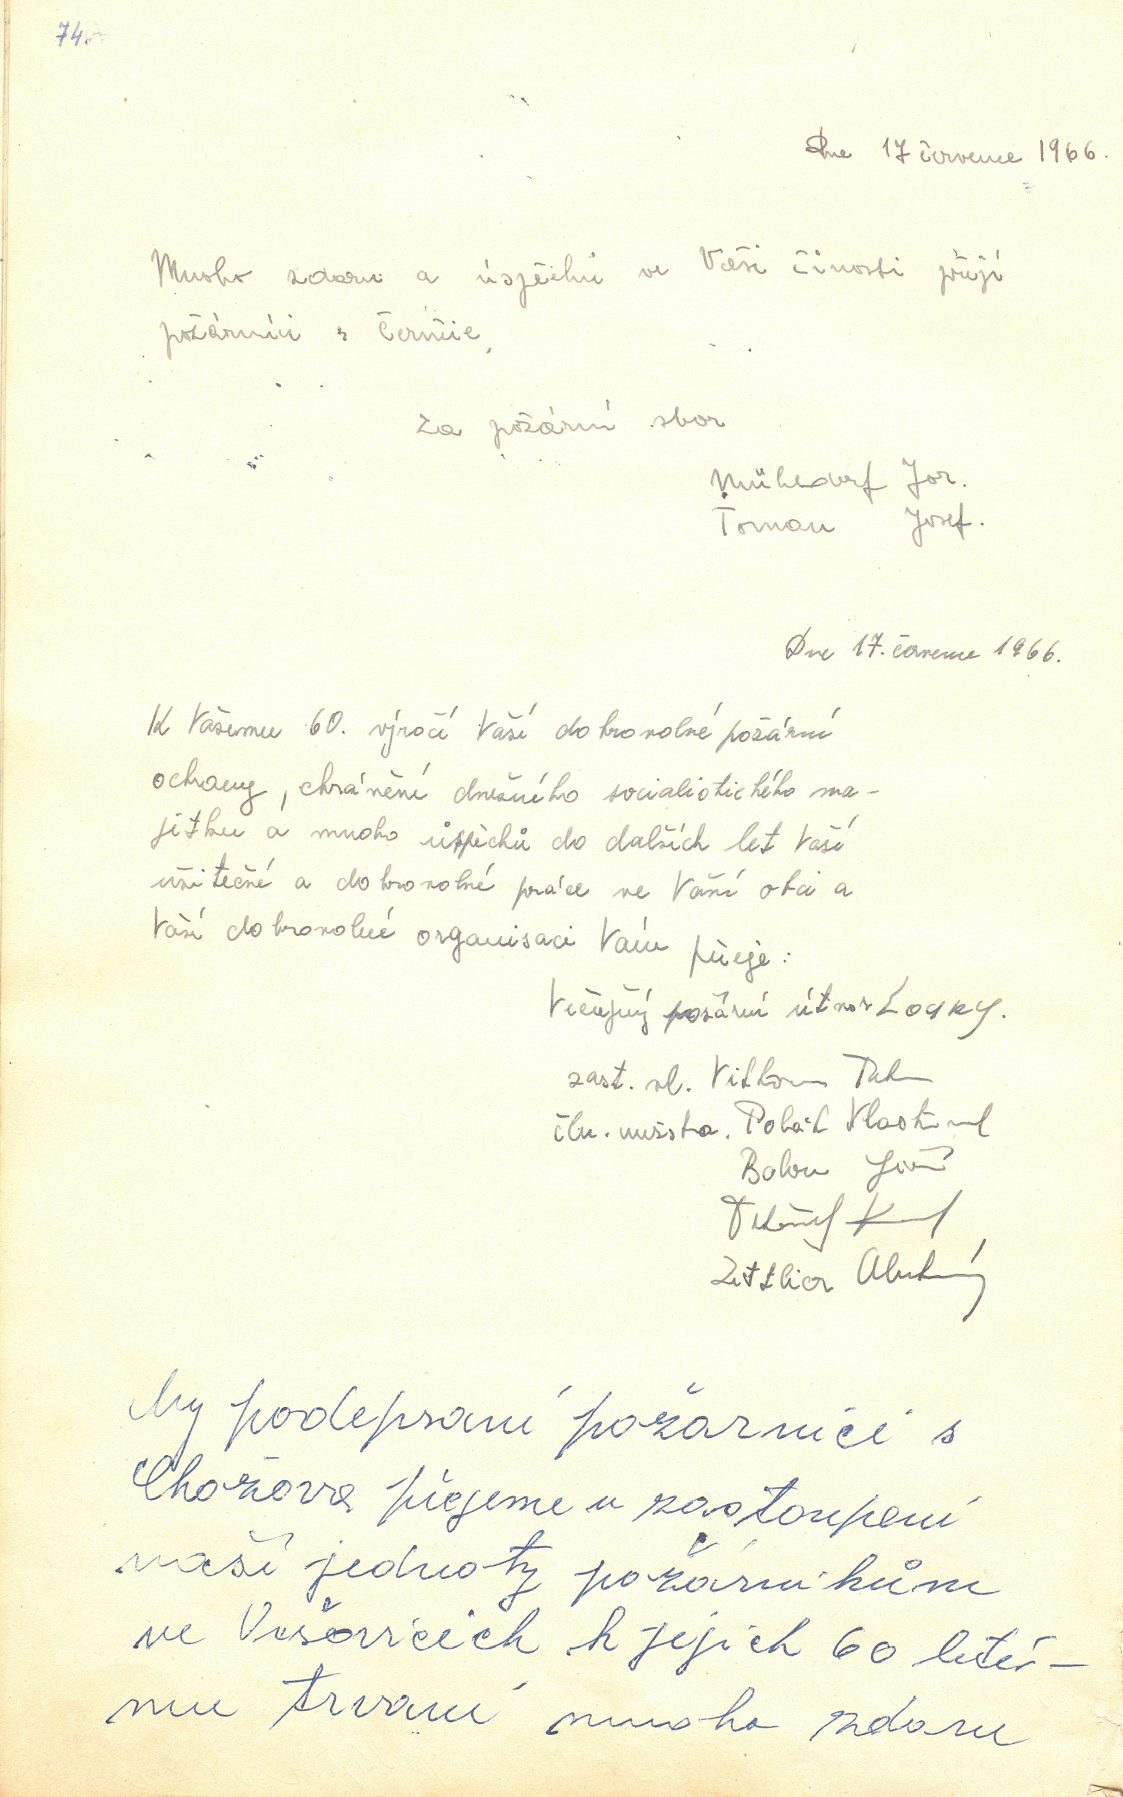 74.
Dne 17 července 1966.
Mnoho zdaru a úspěchů ve Vaši činosti přejí
požárníci z Černčic
Za požární sbor
Mühldorf Jar.
Toman Josef.
Dne 17. července 1966.
K Vašemu 60. výročí Vaší dobrovolné požární
ochrany, chránění dnešního socialistického ma-
jetku a mnoho úspěchů do dalších let Vaší
užitečné a dobrovolné práce ve Vaší obci a
Vaší dobrovolné organisaci Vám přeje:
Veřejný požární útvar Louny.
zast. vel.
čln. mužstva. Polák Vlastimil
Jiří
Karel
My podepsaní požárnici s
Chožova přejeme u zastoupení
naší jednoty požárnikům
ve Vršovicich k jejich 60 leté-
mu trvaní mnoho zdaru